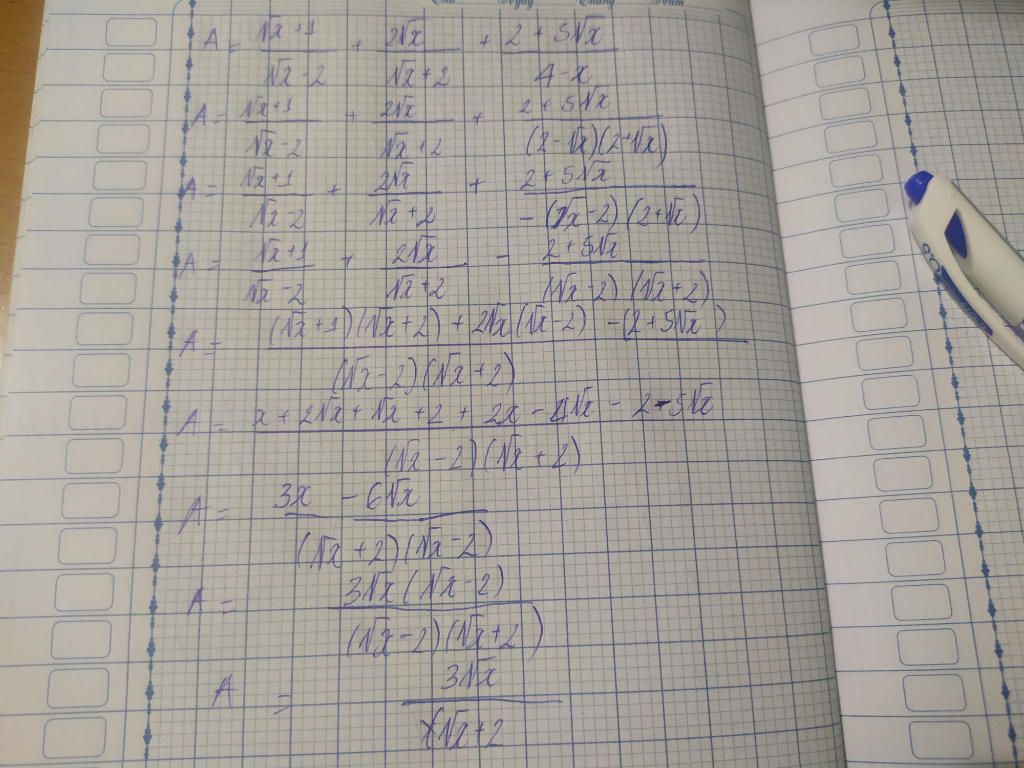 A = (√x+1)/(√x-2) + (2√x)/(√x+2) + (2+5√x)/(4-x)
A = (√x+1)/(√x-2) + (2√x)/(√x+2) + (2+5√x)/((2-√x)(2+√x))
A = (√x+1)/(√x-2) + (2√x)/(√x+2) + (2+5√x)/(-(√x-2)(2+√x))
A = (√x+1)/(√x-2) + (2√x)/(√x+2) - (2+5√x)/((√x-2)(√x+2))
A = ((√x+1)(√x+2) + 2√x(√x-2) - (2+5√x))/((√x-2)(√x+2))
A = (x+2√x+√x+2+2x-4√x-2-5√x)/((√x-2)(√x+2))
A = (3x-6√x)/((√x+2)(√x-2))
A = (3√x(√x-2))/((√x-2)(√x+2))
A = (3√x)/(√x+2)